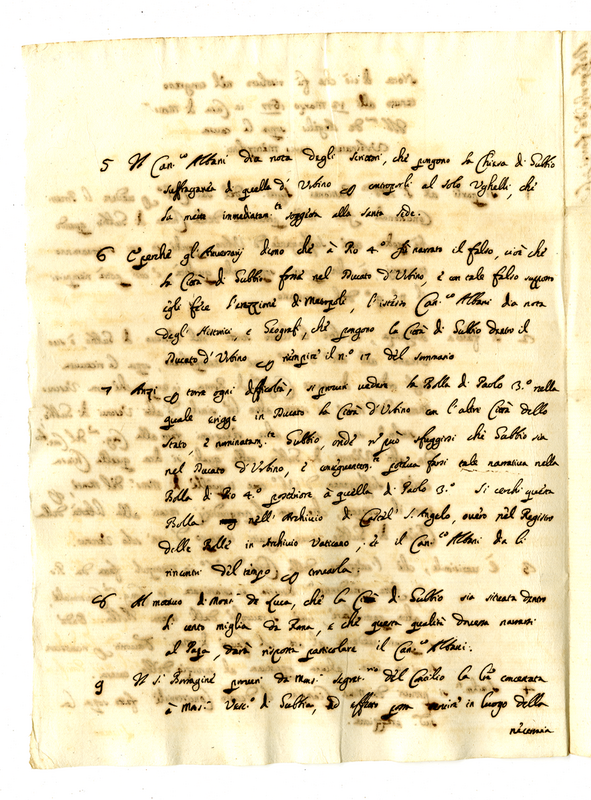 5 Il Can.co Albani dia nota degli scrittori, che pongono la Chiesa di Gubbio
suffraganea di quella d'Urbino per contraporli al solo Ughelli, che
la mette immediatam.te soggetta alla Santa Sede.
6 E perche gli Aversarij dicono che à Pio 4.o fù narrato il falso, cioè che
la Città di Gubbio fosse nel Ducato d'Urbino, e con tale falso supposto
egli fece l'erezzione di Metropoli, l'istesso Can.co Albani dia nota
degli Historici, e Geografi, che pongono la Città di Gubbio dentro il
Ducato d'Urbino per riempire il n.o 17 del sommario
7 Anzi per torre ogni difficoltà, si procuri vedere la Bolla di Paolo 3.o nella
quale erigge in Ducato la Città d'Urbino con l'altre Città dello
Stato, e nominatam.te Gubbio, onde non può sfuggirsi che Gubbio sia
nel Ducato d'Urbino, e conseguentem.te poteva farsi tale narrativa nella
Bolla di Pio 4.o posteriore à quella di Paolo 3.o Si cerchi questa
Bolla nell'Archivio di Castel S. Angelo, overo nel Registro
delle Bolle in Archivio Vaticano, et il Can.co Albani dia li
rincontri del tempo, per trovarla.
8 Al motivo di Mons.r de Luca, che la Città di Gubbio sia situata dentro
li cento miglia da Roma, e che questa qualità doveva narrarsi
al Papa, darà risposta particolare il Can.co Albani.
9 Il S.r Bormagini procuri da Mons. Segret.rio del Concilio la
à Mons. Vesc.o di Gubbio, ad effetto in luogo della
necessaria